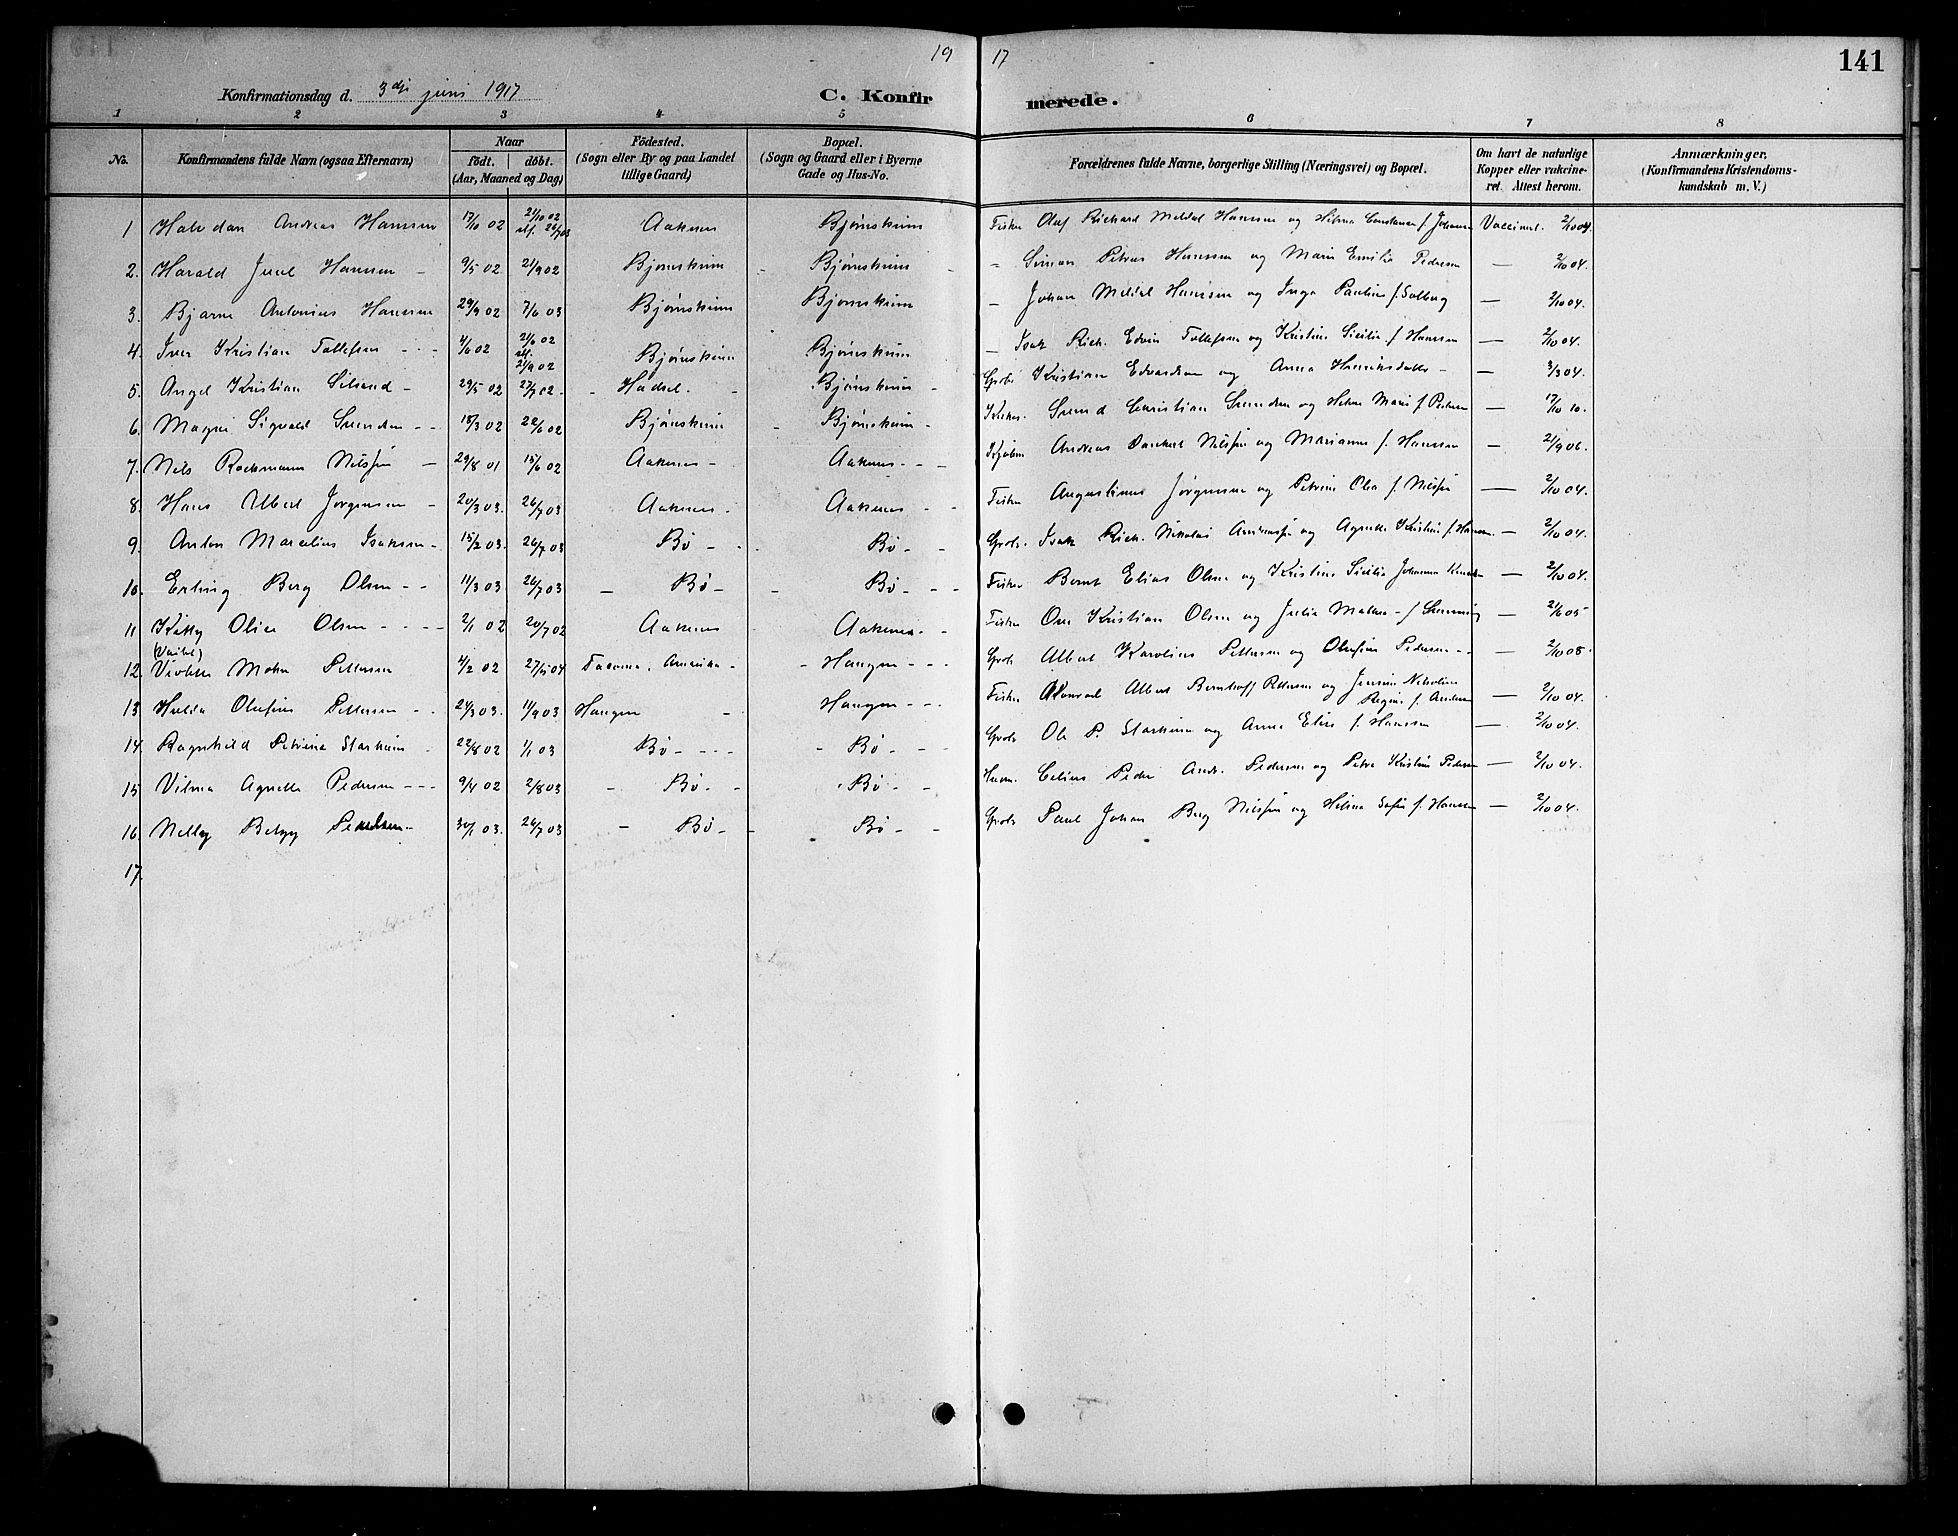 19 17
141
Konfirmationsdag d. 3dje juni 1917
C. Konfirmerede.
1 2 3 4 5 6 7 8
No.
Konfirmandens fulde Navn (ogsaa Efternavn)
Naar
födt. döbt.
(Aar, Maaned og Dag)
Födested.
(Sogn eller By og paa Landet
tillige Gaard)
Bopæl.
(Sogn og Gaard eller i Byerne
Gade og Hus-No.
Forældrenes fulde Navne, borgerlige Stilling (Næringsvei) og Bopæl.
Om havt de naturlige
Kopper eller vakcine-
ret. Attest herom.
Anmærkninger.
(Konfirmandens Kristendoms-
kundskab m. V.)
1 Halvdan Andreas Hanssen 17/10 02 2/10 02 26/7 03 Aaknes Bjørnskinn Fisker Olaf Richard Meldal Hanssen og Helma Constanse f. Johansen Vaccineret. 2/10 04.
2. Harald Juul Hanssen - 9/5 02 21/9 02 Bjørnskinn Bjørnskinn - Simon Petrus Hanssen og Marie Emilie Pedersen — 2/10 04.
3. Bjarne Antonius Hanssen 29/9 02 7/6 03 Bjørnskinn Bjørnskinn - Johan Meldal Hanssen og Inga Pauline f. Solberg — 2/10 04.
4. Iver Kristian Tollefsen - - 4/6 02 21/6 02 21/9 02 Bjørnskinn Bjørnskinn - Isak Rich. Edvin Tollefsen og Kristine Sicilie f Hanssen — 2/10 04.
5. Angel Kristian Silsand - 29/5 02 27/7 02. - Hadsel. - Bjørnskinn - Grdb. Kristian Edvardsen og Anna Henriksdatter - — 3/3 04.
6. Magne Sigvald Svendsen - - 18/3 02 22/6 02 Bjørnskinn Bjørnskinn - Svend Christian Svendsen og Helene Marie f Pedersen — 17/10 10.
7. Nils Rochmann Nilssen - 29/8 01 15/6 02 Aaknes - Aaknes - - - Andreas Danckert Nilssen og Marianne f. Hanssen — 21/9 06.
8. Hans Albert Jørgensen - 20/3 03. 26/7 03 Aaknes - Aaknes - Fisker Augustinus Jørgensen og Petrine Olea f. Nilssen — 2/10 04.
9. Anton Marcelius Isaksen - 15/2 03. 26/7 03 Bø - Bø - Grdb. Isak Rich. Nikolai Andreassen og Agnette Kristine f. Hanssen — 2/10 04.
10. Erling Berg Olsen - - 11/3 03 26/7 03 - Bø - - Bø - - Fisker Bernt Elias Olsen og Kristine Sicilie Johanna — 2/10 04.
11 Kitty Olise Olsen - - - 2/1 02 20/7 02 Aaknes Aaknes - Fisker Ove Kristian Olsen og Julie — 21/6 05
12. Violette Mohn Pettersen 4/2 02 Tacoma, Amerika - - Haugen - - - Grdb Albert Karolius Pettersen og Olufine Pedersen - - — 2/10 08.
13 Hulda Olufine Pettersen - - 24/3 03. 11/9 03 Haugen - Haugen - - - Fisker Konrad Albert Bernhoff Pettersen og Jensine Nikoline Regine f. Andersen — 2/10 04.
14. Ragnhild Petrine Starheim - 22/8 02 1/1 03 Bø - - - - - Bø - - - Grdb Ole P. Starheim og Anne Elise f. Hanssen — 2/10 04.
15 Vilma Agnette Pedersen - - - 9/4 02 2/8 03 - Bø - - Bø - - Celius Peder Andr. Pedersen og Petra Kristine Pedersen — 2/10 04.
16. Nelly Betzy - 30/1 03. 26/7 03 - Bø - - Bø - - Grdb Paul Johan Berg Nilssen og Helma Sofie f. Hanssen — 2/10 04.
17.